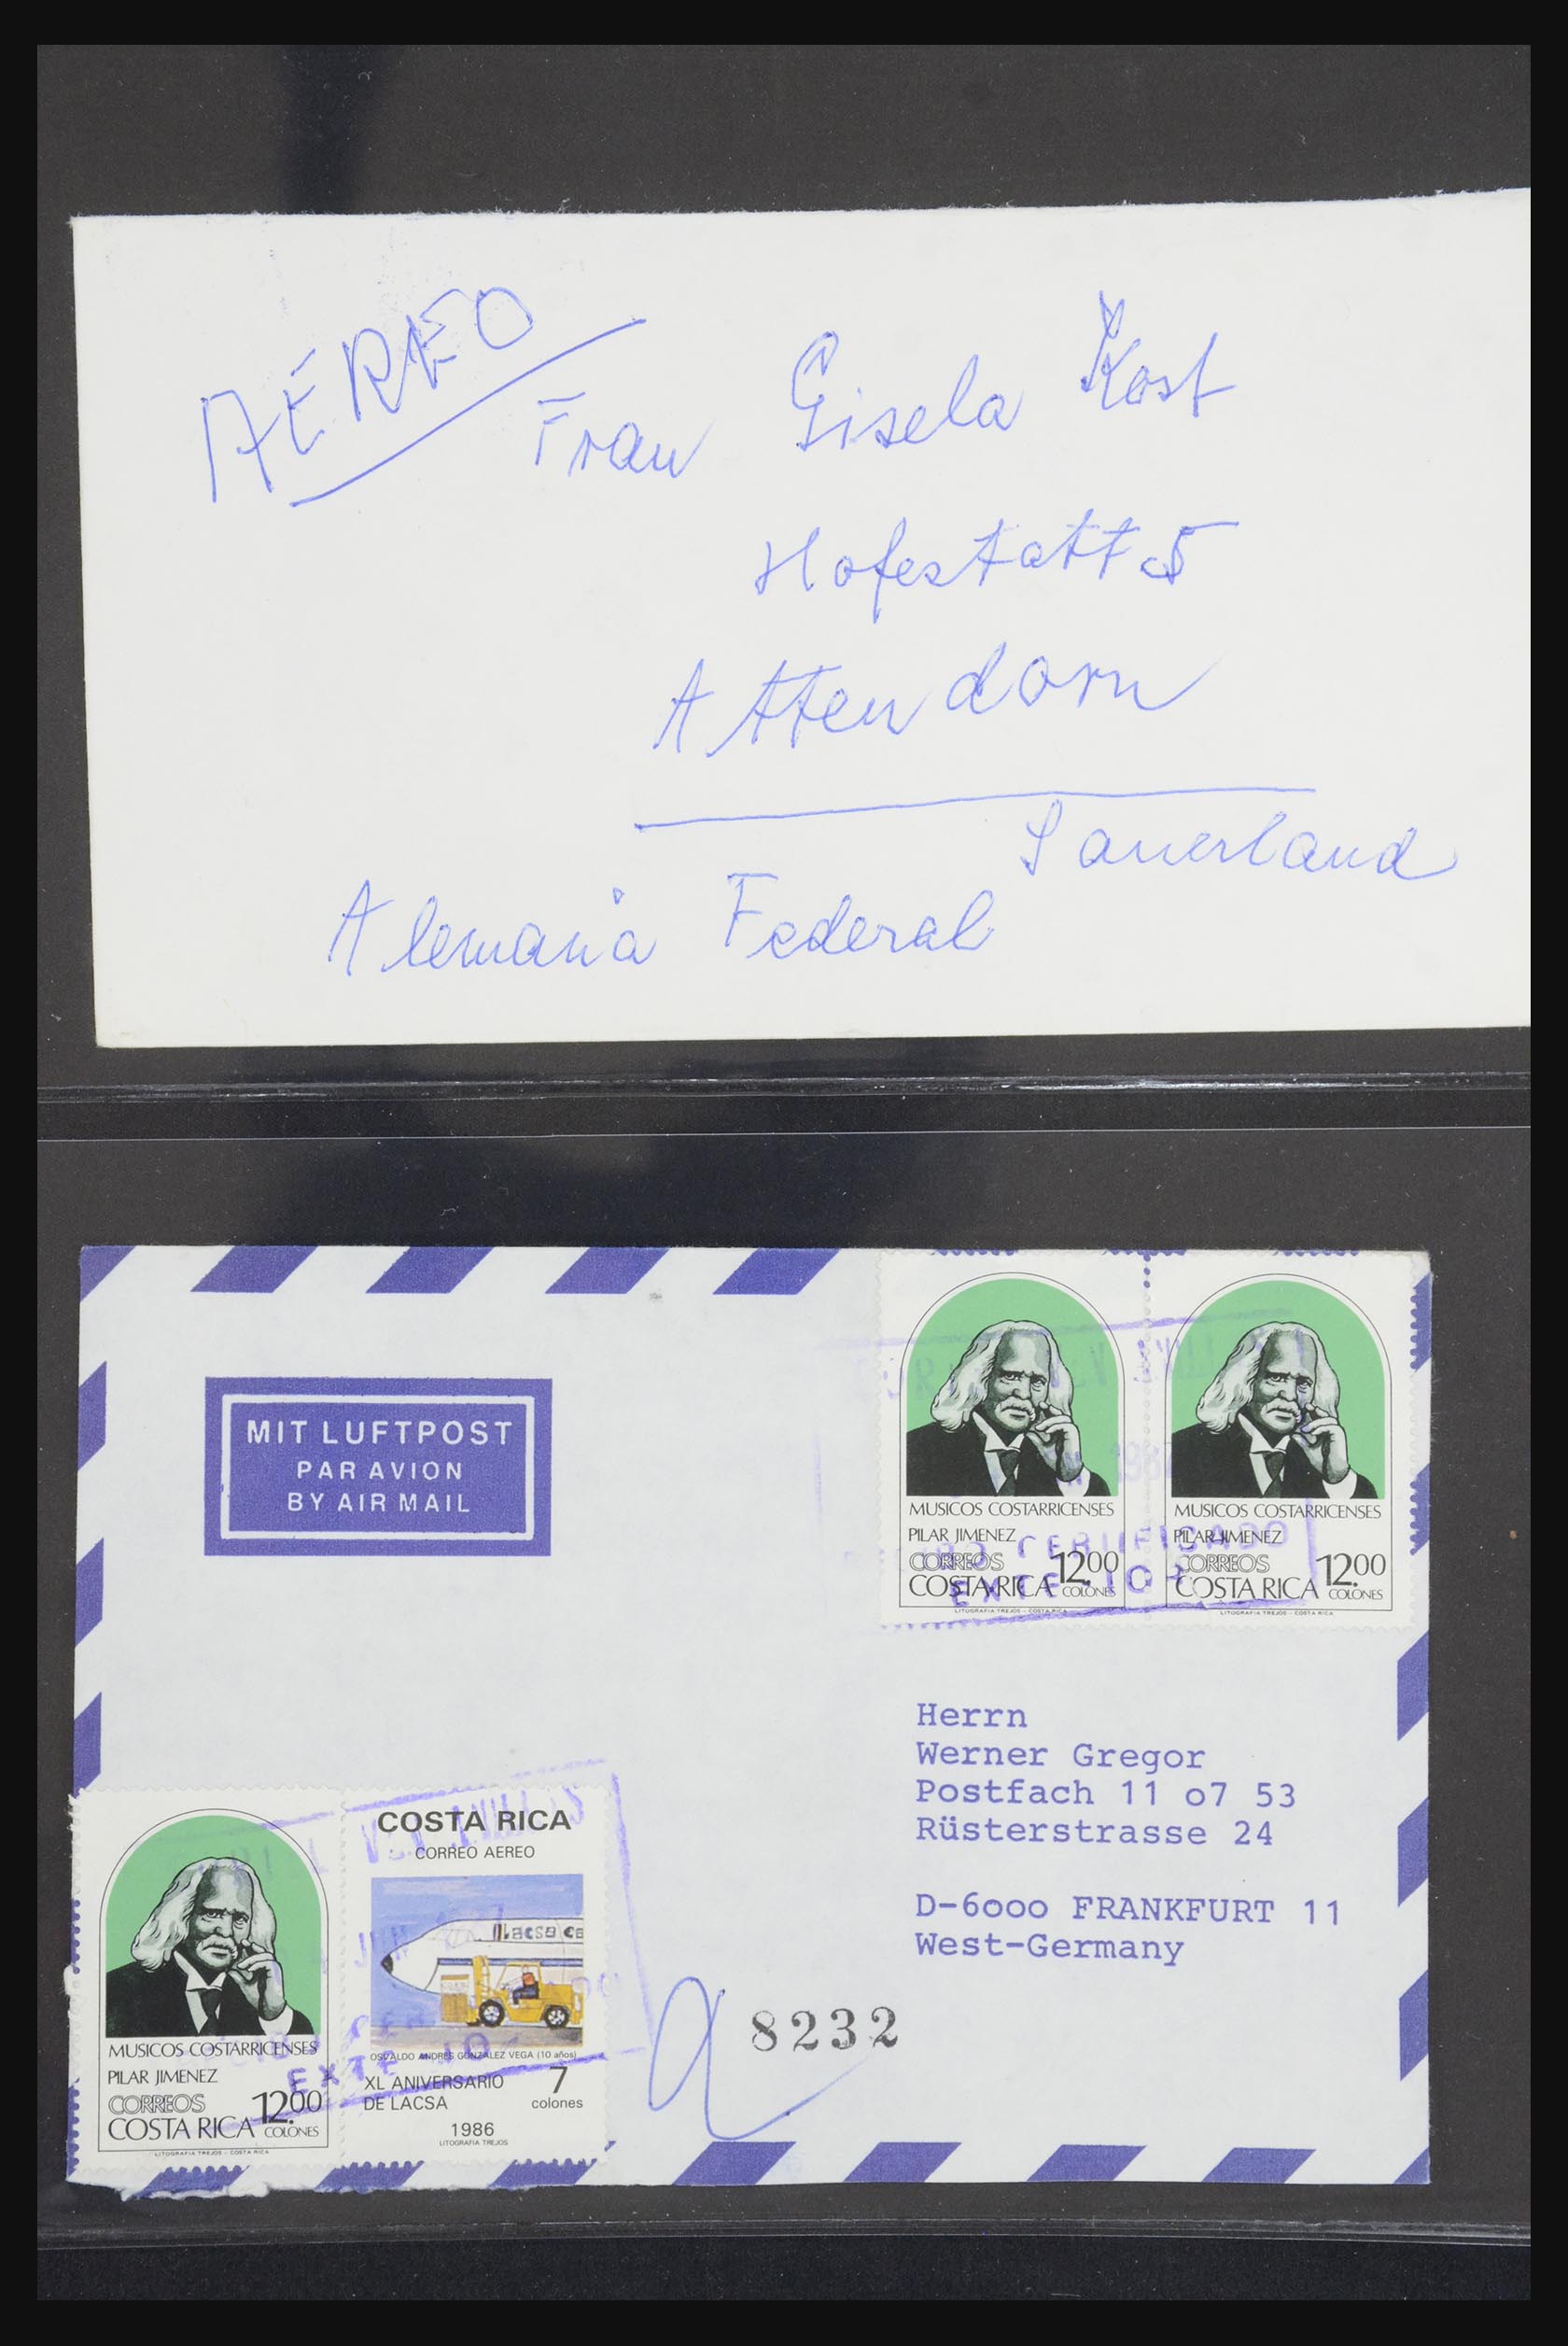 AÉREO
Frau Gisela Kost
Hofestatt 5
Attendorn
Sauerland
Alemania Federal
MIT LUFTPOST
PAR AVION
BY AIR MAIL
MUSICOS COSTARRICENSES
PILAR JIMENEZ
CORREOS 12.00
COSTA RICA COLONES
LITOGRAFIA TREJOS - COSTA RICA
MUSICOS COSTARRICENSES
PILAR JIMENEZ
CORREOS 12.00
COSTA RICA COLONES
LITOGRAFIA TREJOS - COSTA RICA
CERTIFICADO
Herrn
Werner Gregor
Postfach 11 o7 53
Rüsterstrasse 24
D-6ooo FRANKFURT 11
West-Germany
MUSICOS COSTARRICENSES
PILAR JIMENEZ
CORREOS 12.00
COSTA RICA COLONES
LITOGRAFIA TREJOS - COSTA RICA
COSTA RICA
CORREO AEREO
lacsa
OSVALDO ANDRES GONZALEZ VEGA (10 años)
XL ANIVERSARIO 7
DE LACSA colones
1986
LITOGRAFIA TREJOS
8232